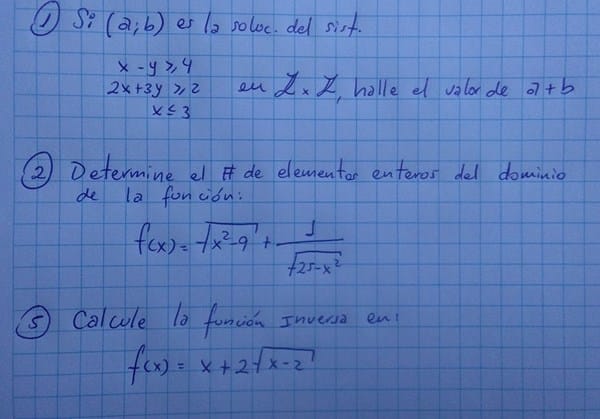 ① Si (a;b) es la soluc. del sist.
x - y ≥ 4
2x+3y ≥ 2 en ℤ × ℤ, halle el valor de a+b
x ≤ 3
② Determine el # de elementos enteros del dominio
de la función:
f(x) = √(x²-9) + 1/√(25-x²)
⑤ Calcule la función inversa en:
f(x) = x + 2√(x-2)